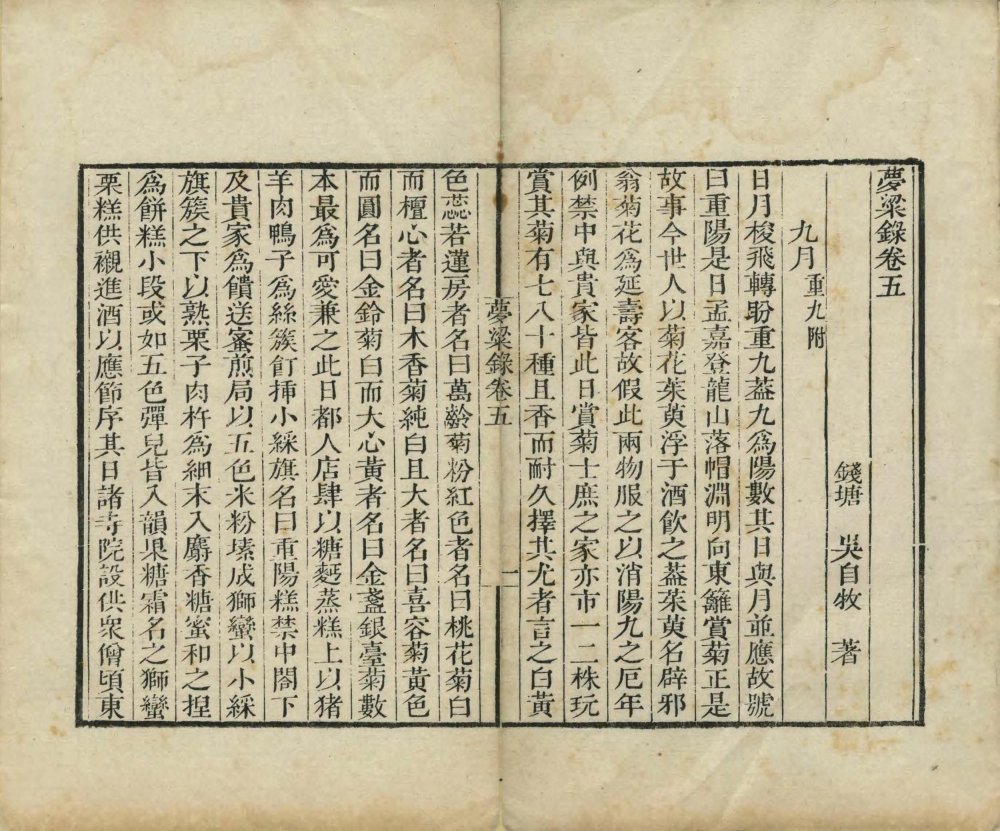 夢粱錄卷五
錢塘 吳自牧 著
九月 重九附
日月梭飛轉盼重九葢九爲陽數其日與月並應故號
曰重陽是日孟嘉登龍山落帽淵明向東籬賞菊正是
故事今世人以菊花茱萸浮于酒飲之葢茱萸名辟邪
翁菊花爲延壽客故假此兩物服之以消陽九之厄年
例禁中與貴家皆此日賞菊士庶之家亦市一二株玩
賞其菊有七八十種且香而耐久擇其尤者言之白黃
夢粱錄卷五
一
色蕊若蓮房者名曰萬齡菊粉紅色者名曰桃花菊白
而檀心者名曰木香菊純白且大者名曰喜容菊黃色
而圓名曰金鈴菊白而大心黃者名曰金盞銀臺菊數
本最爲可愛兼之此日都人店肆以糖麫蒸糕上以猪
羊肉鴨子爲絲簇飣揷小綵旗名曰重陽糕禁中閤下
及貴家爲饋送蜜煎局以五色米粉塐成獅蠻以小綵
旗簇之下以熟栗子肉杵爲細末入麝香糖蜜和之捏
爲餅糕小段或如五色彈兒皆入韻果糖霜名之獅蠻
栗糕供襯進酒以應節序其日諸寺院設供衆僧頃東